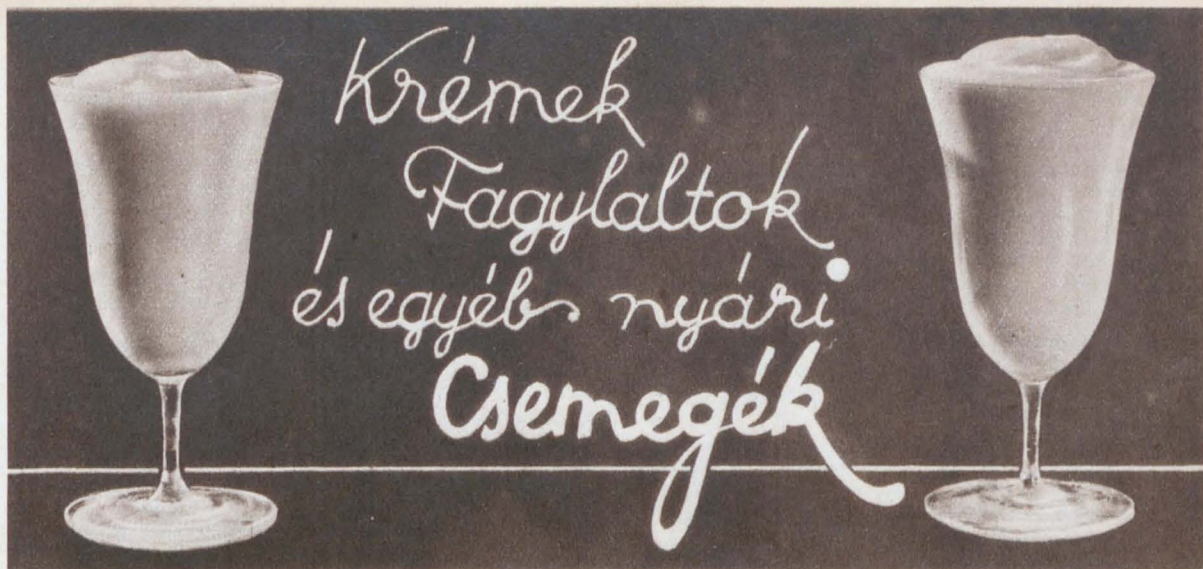 Krémek
Fagylaltok
és egyéb nyári
Csemegék